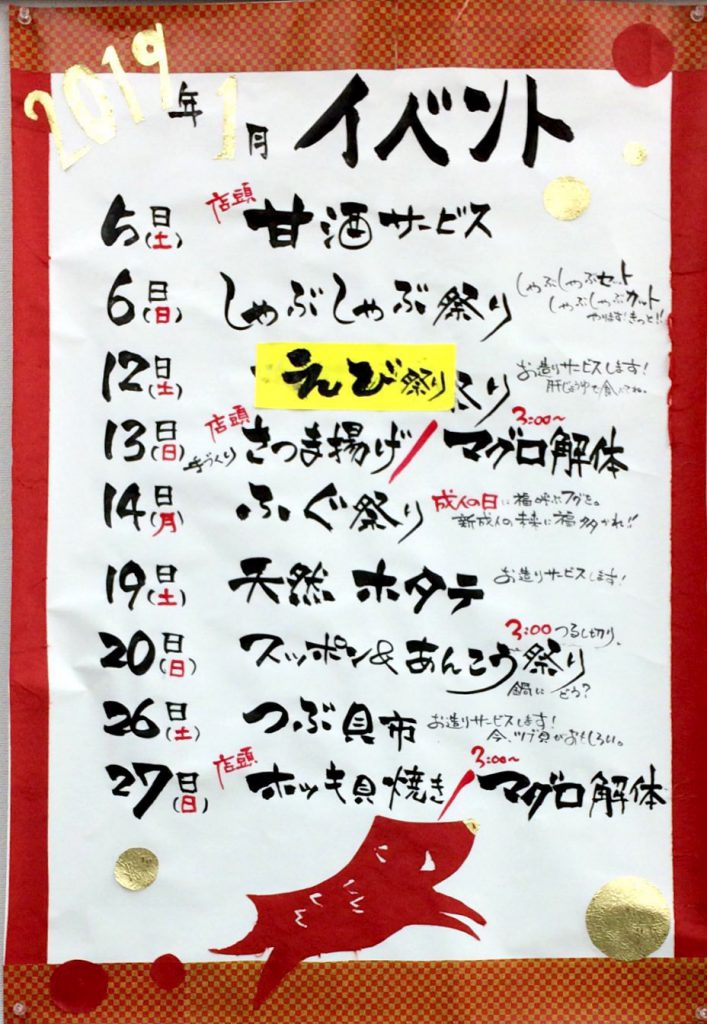 2019年1月 イベント
5日(土) 店頭 甘酒サービス
6日(日) しゃぶしゃぶ祭り しゃぶしゃぶセット
しゃぶしゃぶカット
やります!きっと!!
12日(土) えび祭り 祭り お造りサービスします!
肝じょうゆで食べてね。
13日(日) 店頭 手づくり さつま揚げ / 3:00〜 マグロ解体
14日(月) ふぐ祭り 成人の日に福呼ぶフグを。
新成人の未来に福多かれ!!
19日(土) 天然ホタテ お造りサービスします!
20日(日) スッポン&あんこう祭り 3:00 つるし切り。
鍋にどう?
26日(土) つぶ貝市 お造りサービスします!
今、ツブ貝がおもしろい。
27日(日) 店頭 ホッキ貝焼き / 3:00〜 マグロ解体